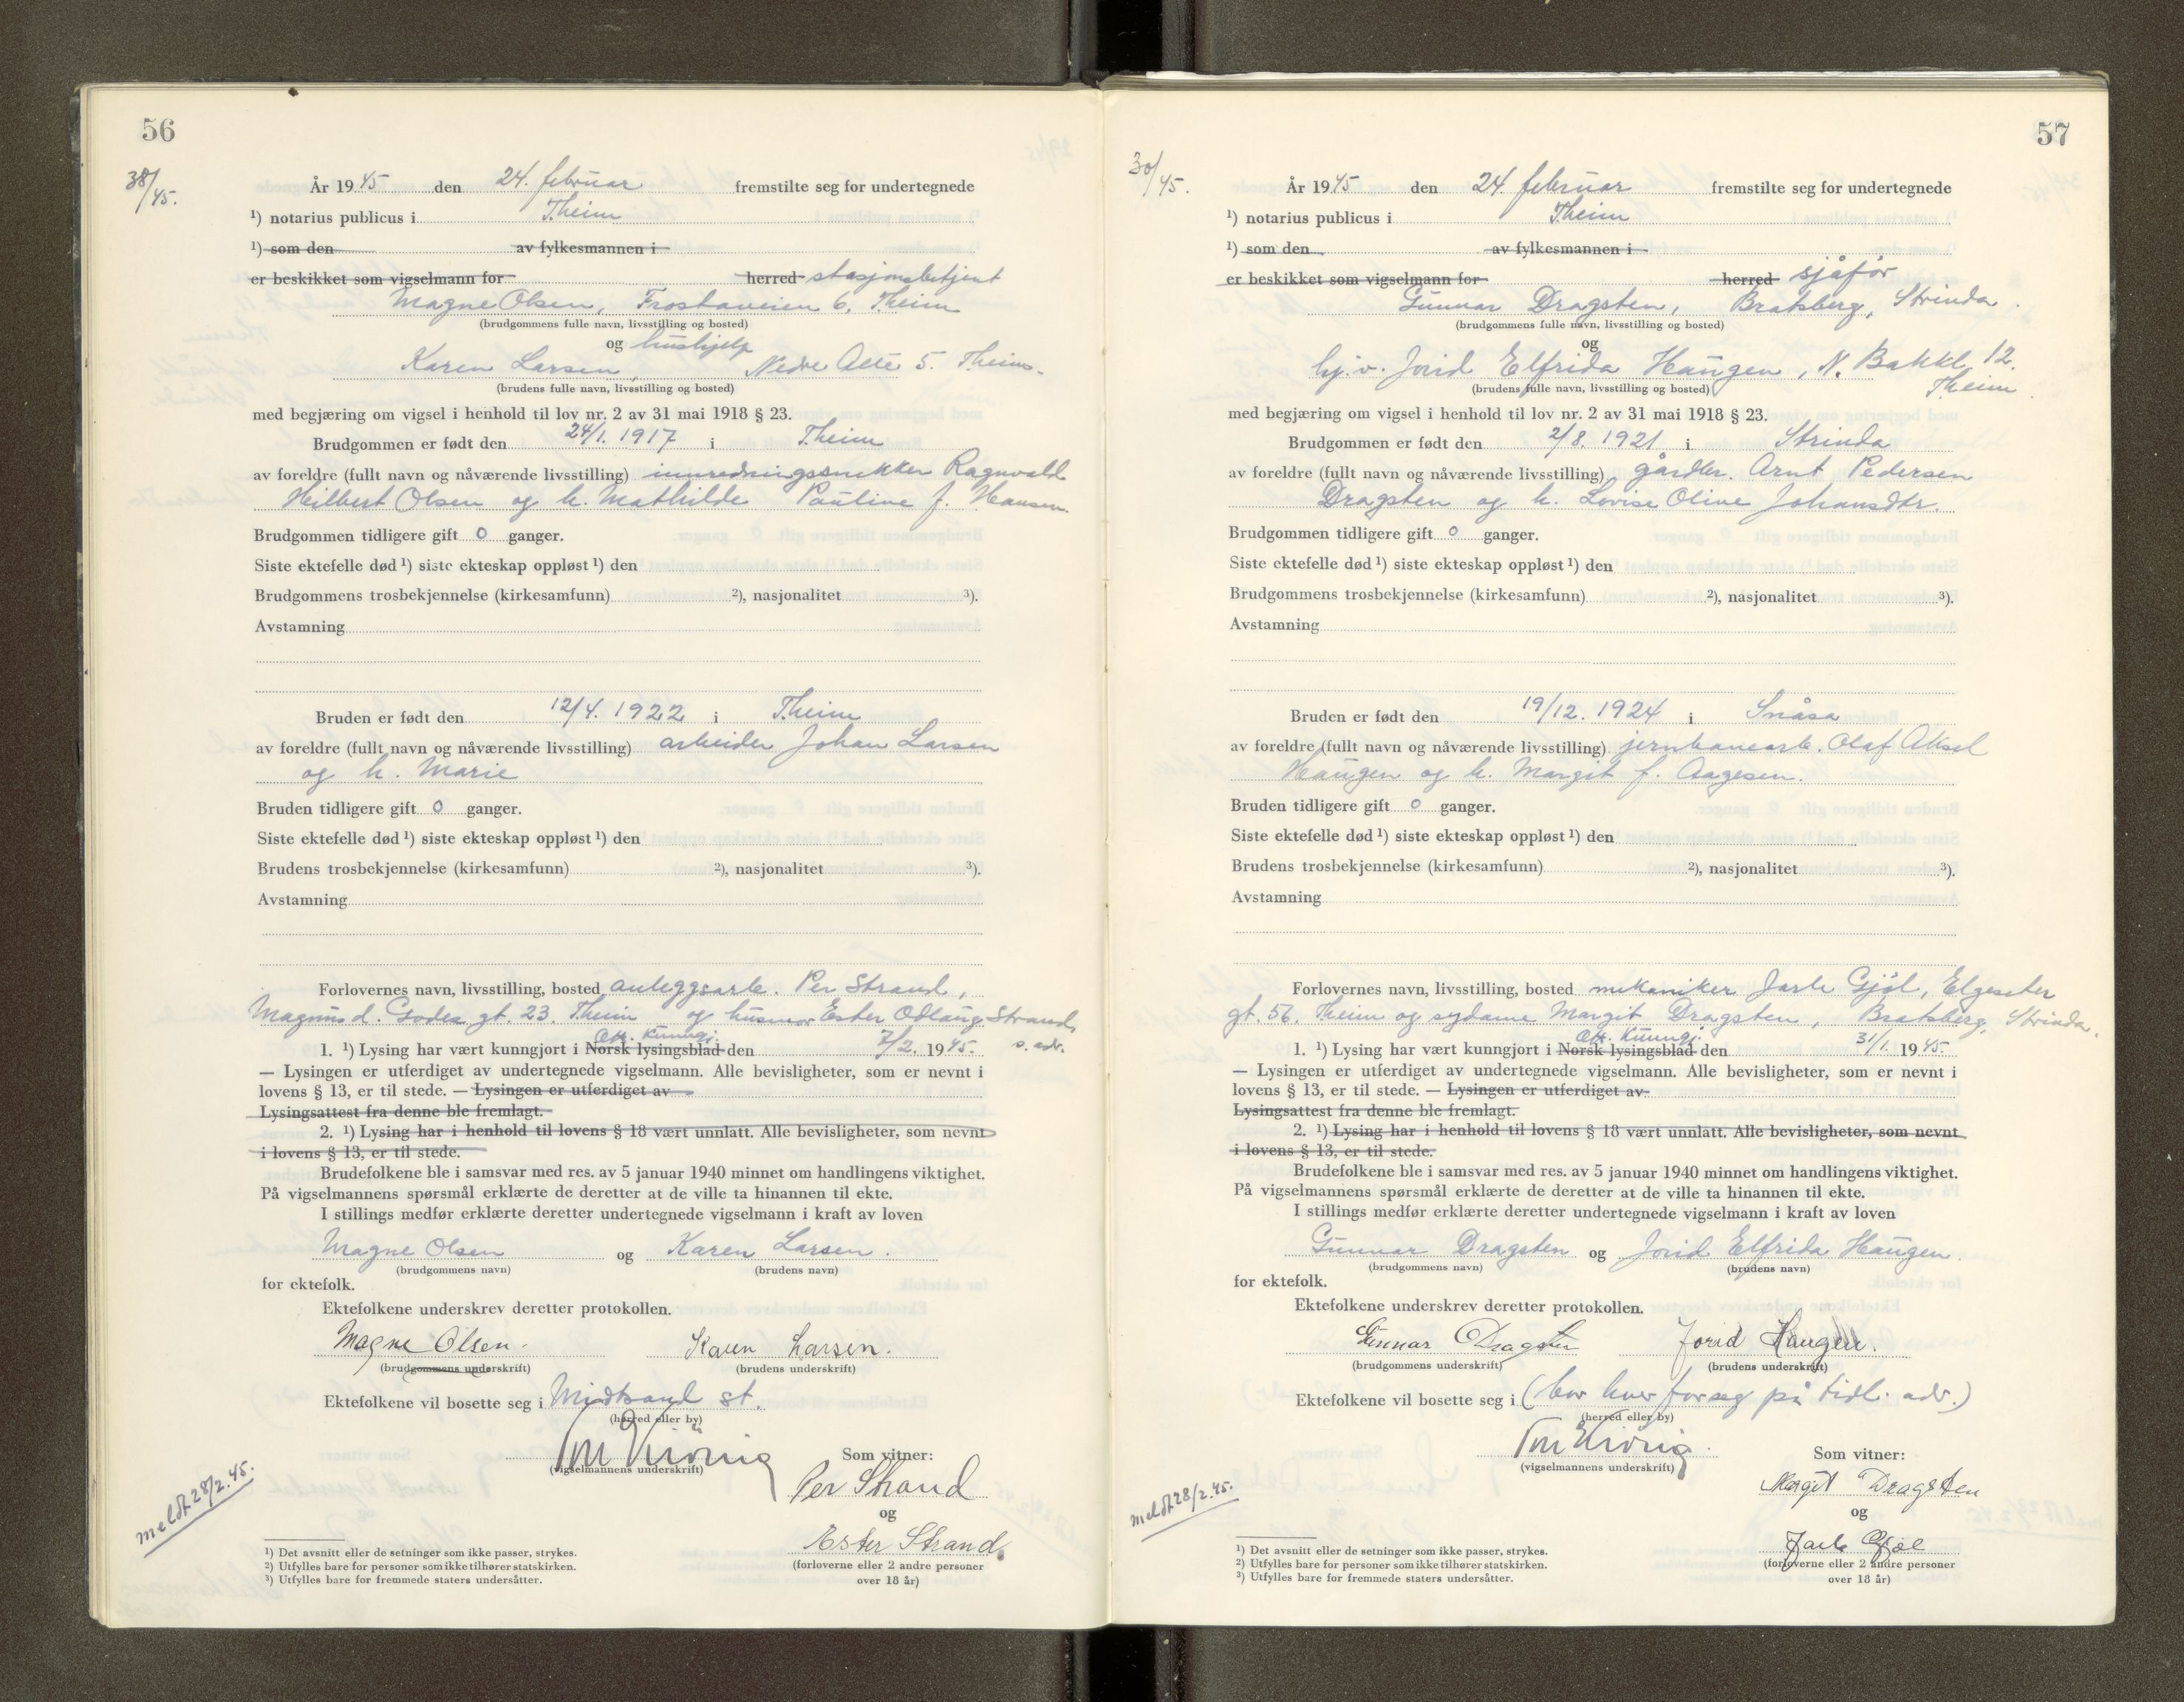 56
38/45.
År 1945 den 24. februar fremstilte seg for undertegnede
¹) notarius publicus i T.heim
¹) som den av fylkesmannen i
er beskikket som vigselmann for herred stasjonsbetjent
Magne Olsen, Frostaveien 6, T.heim
(brudgommens fulle navn, livsstilling og bosted)
og hushjelp
Karen Larsen, Nedre Alle 5. T.heim.
(brudens fulle navn, livsstilling og bosted)
med begjæring om vigsel i henhold til lov nr. 2 av 31 mai 1918 § 23.
Brudgommen er født den 24/1. 1917 i T.heim
av foreldre (fullt navn og nåværende livsstilling) innredningssnekker Ragnvald
Hilbert Olsen og h. Mathilde Pauline f. Hansen.
Brudgommen tidligere gift 0 ganger.
Siste ektefelle død ¹) siste ekteskap oppløst ¹) den
Brudgommens trosbekjennelse (kirkesamfunn) ²), nasjonalitet ³).
Avstamning
Bruden er født den 12/4. 1922 i T.heim
av foreldre (fullt navn og nåværende livsstilling) arbeider Johan Larsen
og h. Marie
Bruden tidligere gift 0 ganger.
Siste ektefelle død ¹) siste ekteskap oppløst ¹) den
Brudens trosbekjennelse (kirkesamfunn) ²), nasjonalitet ³).
Avstamning
Forlovernes navn, livsstilling, bosted anleggsarb. Per Strand,
Magnus d. Godes gt. 23. T.heim og husmor Ester Odlaug Strand,
s. adr.
Off. kunngj.
1. ¹) Lysing har vært kunngjort i Norsk lysingsblad den 7/2. 1945.
— Lysingen er utferdiget av undertegnede vigselmann. Alle bevisligheter, som er nevnt i
lovens § 13, er til stede. — Lysingen er utferdiget av
Lysingsattest fra denne ble fremlagt.
2. ¹) Lysing har i henhold til lovens § 18 vært unnlatt. Alle bevisligheter, som nevnt
i lovens § 13, er til stede.
Brudefolkene ble i samsvar med res. av 5 januar 1940 minnet om handlingens viktighet.
På vigselmannens spørsmål erklærte de deretter at de ville ta hinannen til ekte.
I stillings medfør erklærte deretter undertegnede vigselmann i kraft av loven
Magne Olsen og Karen Larsen.
(brudgommens navn) (brudens navn)
for ektefolk.
Ektefolkene underskrev deretter protokollen.
Magne Olsen. Karen Larsen.
(brudgommens underskrift) (brudens underskrift)
Ektefolkene vil bosette seg i Midtsand st.
(herred eller by)
(vigselmannens underskrift)
Som vitner:
Per Strand
og
Ester Strand.
(forloverne eller 2 andre personer
over 18 år)
meldt 28/2.45.
¹) Det avsnitt eller de setninger som ikke passer, strykes.
²) Utfylles bare for personer som ikke tilhører statskirken.
³) Utfylles bare for fremmede staters undersåtter.
57
30/45.
År 1945 den 24. februar fremstilte seg for undertegnede
¹) notarius publicus i T.heim
¹) som den av fylkesmannen i
er beskikket som vigselmann for herred sjåfør
Gunnar Dragsten, Bratsberg, Strinda.
(brudgommens fulle navn, livsstilling og bosted)
og
hj.v. Jorid Elfrida Haugen, N. Bakkl. 12.
T.heim.
(brudens fulle navn, livsstilling og bosted)
med begjæring om vigsel i henhold til lov nr. 2 av 31 mai 1918 § 23.
Brudgommen er født den 2/8. 1921 i Strinda
av foreldre (fullt navn og nåværende livsstilling) gårdbr. Arnt Pedersen
Dragsten og h. Lovise Oline Johansdtr.
Brudgommen tidligere gift 0 ganger.
Siste ektefelle død ¹) siste ekteskap oppløst ¹) den
Brudgommens trosbekjennelse (kirkesamfunn) ²), nasjonalitet ³).
Avstamning
Bruden er født den 19/12. 1924 i Snåsa
av foreldre (fullt navn og nåværende livsstilling) jernbanearb. Olaf Aksel
Haugen og h. Margit f. Aagesen.
Bruden tidligere gift 0 ganger.
Siste ektefelle død ¹) siste ekteskap oppløst ¹) den
Brudens trosbekjennelse (kirkesamfunn) ²), nasjonalitet ³).
Avstamning
Forlovernes navn, livsstilling, bosted mekaniker Jarle Gjøl, Elgeseter
gt. 56. T.heim og sydame Margit Dragsten, Bratsberg, Strinda.
Off. kunngj.
1. ¹) Lysing har vært kunngjort i Norsk lysingsblad den 31/1. 1945.
— Lysingen er utferdiget av undertegnede vigselmann. Alle bevisligheter, som er nevnt i
lovens § 13, er til stede. — Lysingen er utferdiget av
Lysingsattest fra denne ble fremlagt.
2. ¹) Lysing har i henhold til lovens § 18 vært unnlatt. Alle bevisligheter, som nevnt
i lovens § 13, er til stede.
Brudefolkene ble i samsvar med res. av 5 januar 1940 minnet om handlingens viktighet.
På vigselmannens spørsmål erklærte de deretter at de ville ta hinannen til ekte.
I stillings medfør erklærte deretter undertegnede vigselmann i kraft av loven
Gunnar Dragsten og Jorid Elfrida Haugen.
(brudgommens navn) (brudens navn)
for ektefolk.
Ektefolkene underskrev deretter protokollen.
Gunnar Dragsten Jorid Haugen.
(brudgommens underskrift) (brudens underskrift)
Ektefolkene vil bosette seg i (bor hver for seg på tidl. adr.)
(herred eller by)
(vigselmannens underskrift)
Som vitner:
Margit Dragsten
og
Jarle Gjøl
(forloverne eller 2 andre personer
over 18 år)
meldt 28/2.45.
¹) Det avsnitt eller de setninger som ikke passer, strykes.
²) Utfylles bare for personer som ikke tilhører statskirken.
³) Utfylles bare for fremmede staters undersåtter.